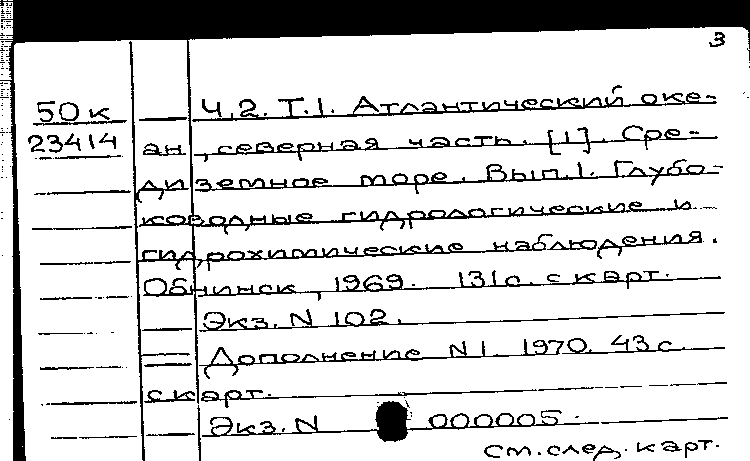 3
50к Ч.2. Т.1. Атлантический оке-
23414 ан, северная часть. [1]. Сре-
диземное море. Вып.1. Глубо-
ководные гидрологические и
гидрохимические наблюдения.
Обнинск, 1969. 131с. с карт.
Экз. N 102.
Дополнение N1. 1970. 43с.
с карт.
Экз. N 000005.
см. след. карт.